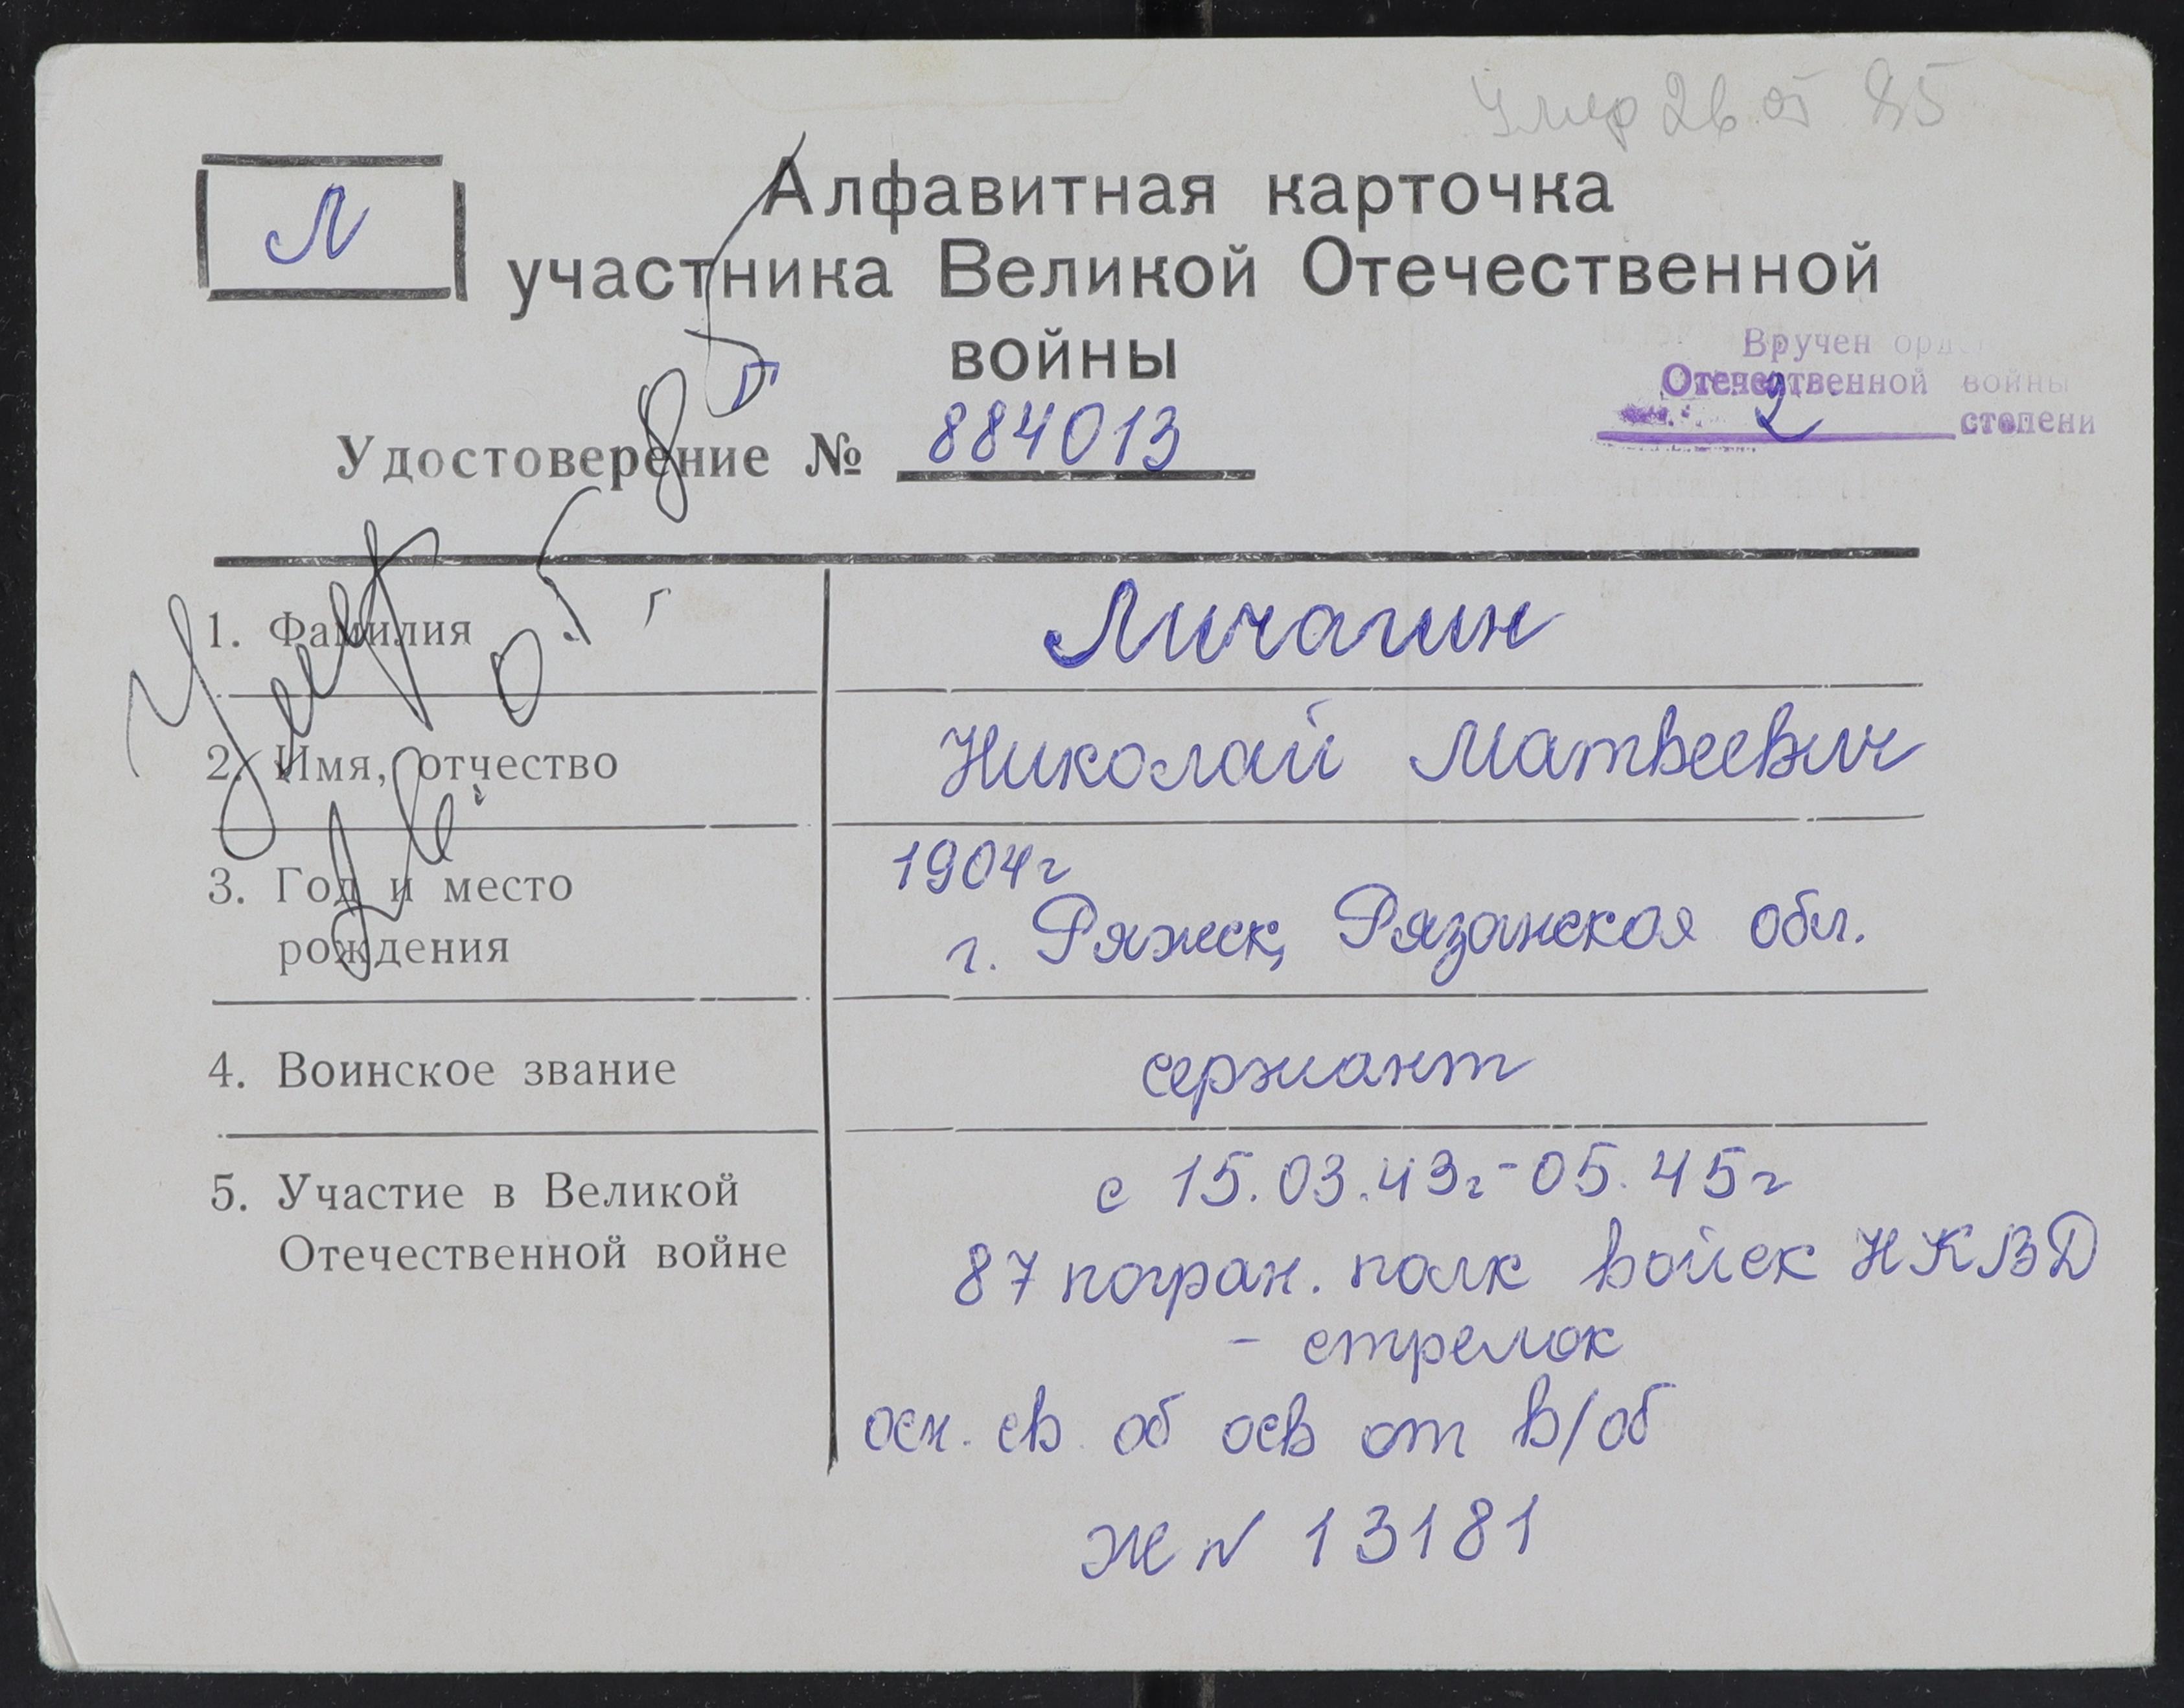 Умер 26.05 85
Л
Алфавитная карточка
участника Великой Отечественной
войны
Вручен орд
Отечественной войны
2 степени
Удостоверение № 884013
Умер 26.05.85 г.
1. Фамилия Личагин
2. Имя, отчество Николай Матвеевич
3. Год и место рождения
1904г
г. Ряжск, Рязанская обл.
4. Воинское звание сержант
5. Участие в Великой Отечественной войне
с 15.03.43г - 05.45г
87 погран. полк войск НКВД
- стрелок
осн. св. об осв от в/об
Ж N 13181